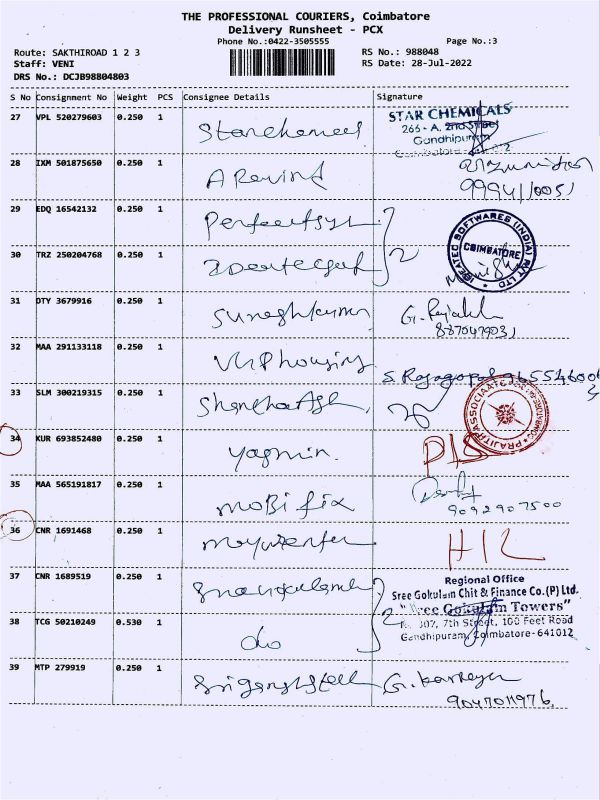 THE PROFESSIONAL COURIERS, Coimbatore
Delivery Runsheet - PCX
Phone No.:0422-3505555
Page No.:3
Route: SAKTHIROAD 1 2 3
RS No.: 988048
Staff: VENI
RS Date: 28-Jul-2022
DRS No.: DCJB98804803
S No Consignment No Weight PCS Consignee Details Signature
27 VPL 520279603 0.250 1
STAR CHEMICALS
266 - A, 2nd Street
Gandhipuram
28 IXM 501875650 0.250 1 ARavind
29 EDQ 16542132 0.250 1
30 TRZ 250204768 0.250 1 2
SOFTWARES (INDIA) PVT LTD
COIMBATORE
31 DTY 3679916 0.250 1 Sureshkumar
32 MAA 291133118 0.250 1 VHP housing S. Rajagopal
33 SLM 300219315 0.250 1
PRAJITH ASSOCIATE
34 KUR 693852480 0.250 1 yasmin. D/S
35 MAA 565191817 0.250 1 MOBi fix
9092907500
36 CNR 1691468 0.250 1 H/L
37 CNR 1689519 0.250 1
Regional Office
Sree Gokulam Chit & Finance Co.(P) Ltd.
"Sree Gokulam Towers"
38 TCG 50210249 0.530 1 do 2
No. 307, 7th Street, 100 Feet Road
Gandhipuram, Coimbatore-641012
39 MTP 279919 0.250 1
9047011976.